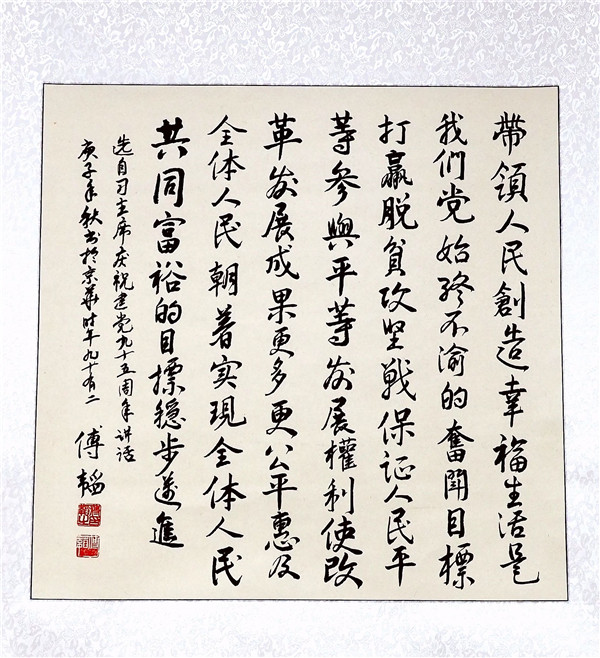 帶領人民創造幸福生活是
我们党始终不渝的奮鬥目標
打贏脱貧攻坚戰保证人民平
等參與平等發展權利使改
革發展成果更多更公平惠及
全体人民朝着实現全体人民
共同富裕的目標穩步邁進
选自习主席庆祝建党九十五周年讲话
庚子年秋书於京華时年九十有二
傅韜